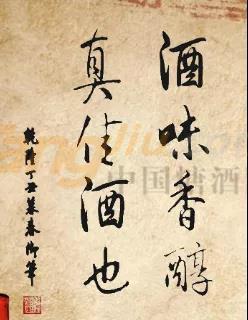 酒味香醇
真佳酒也
乾隆丁丑暮春御笔
中国糖酒